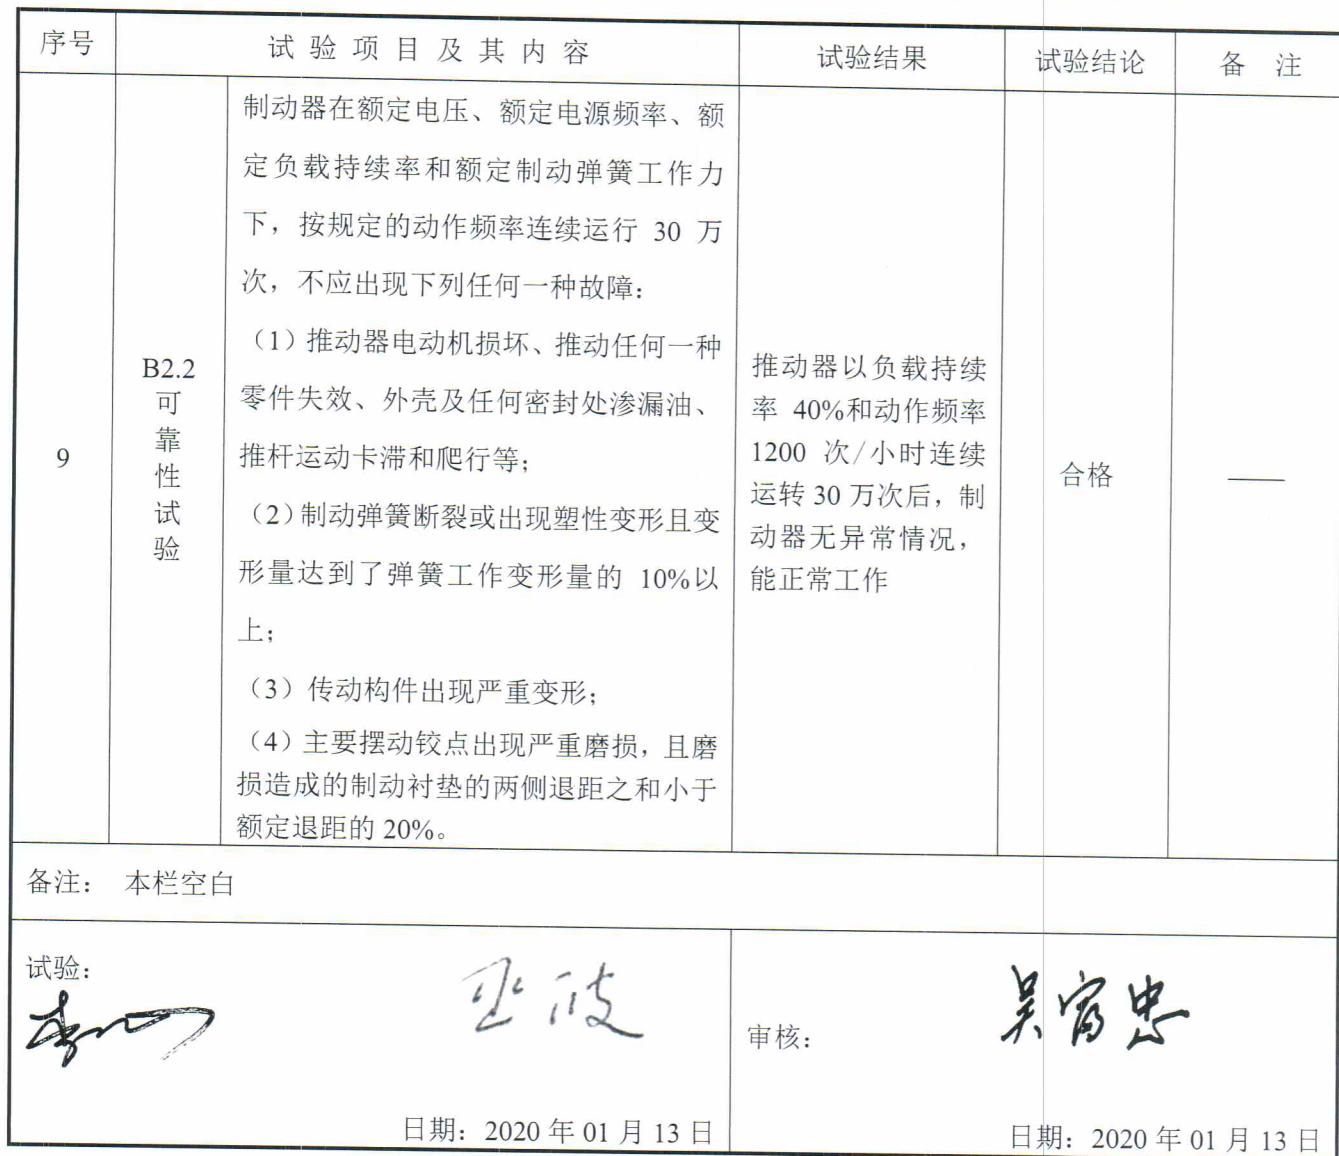 序号 试验项目及其内容 试验结果 试验结论 备 注
9
B2.2
可
靠
性
试
验
制动器在额定电压、额定电源频率、额
定负载持续率和额定制动弹簧工作力
下，按规定的动作频率连续运行 30 万
次，不应出现下列任何一种故障：
（1）推动器电动机损坏、推动任何一种
零件失效、外壳及任何密封处渗漏油、
推杆运动卡滞和爬行等；
（2）制动弹簧断裂或出现塑性变形且变
形量达到了弹簧工作变形量的 10%以
上；
（3）传动构件出现严重变形；
（4）主要摆动铰点出现严重磨损，且磨
损造成的制动衬垫的两侧退距之和小于
额定退距的 20%。
推动器以负载持续
率 40%和动作频率
1200 次/小时连续
运转 30 万次后，制
动器无异常情况，
能正常工作
合格
——
备注： 本栏空白
试验：
日期：2020 年 01 月 13 日
审核：
吴富忠
日期：2020 年 01 月 13 日